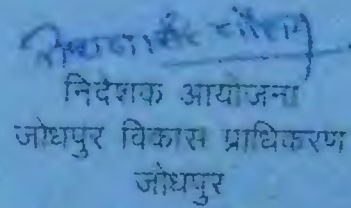 निदेशक आयोजना
जोधपुर विकास प्राधिकरण
जोधपुर